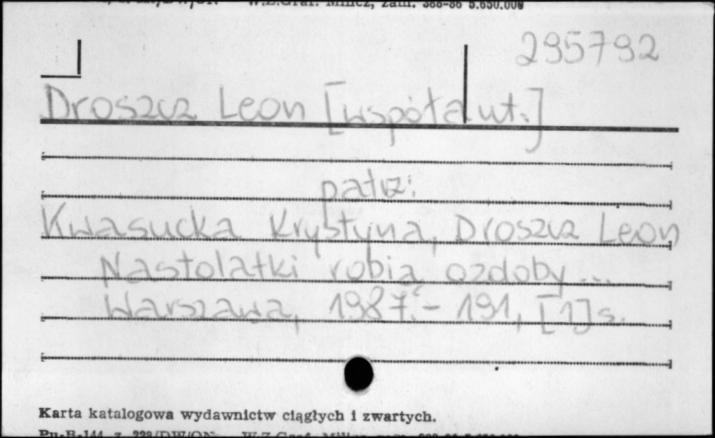 295792
Droszcz Leon [współaut.]
patrz:
Kwasucka Krystyna, Droszcz Leon
Nastolatki robią ozdoby...
Warszawa, 1987.- 191, [1]s.
Karta katalogowa wydawnictw ciągłych i zwartych.